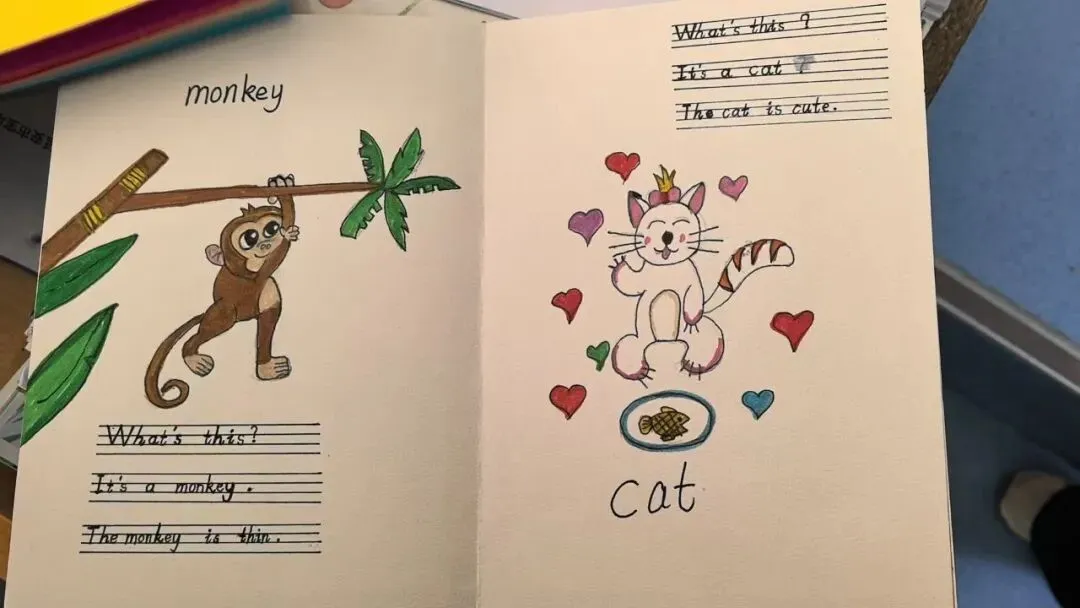 monkey
What's this?
It's a monkey.
The monkey is thin.
What's this ?
It's a cat ?
The cat is cute.
cat